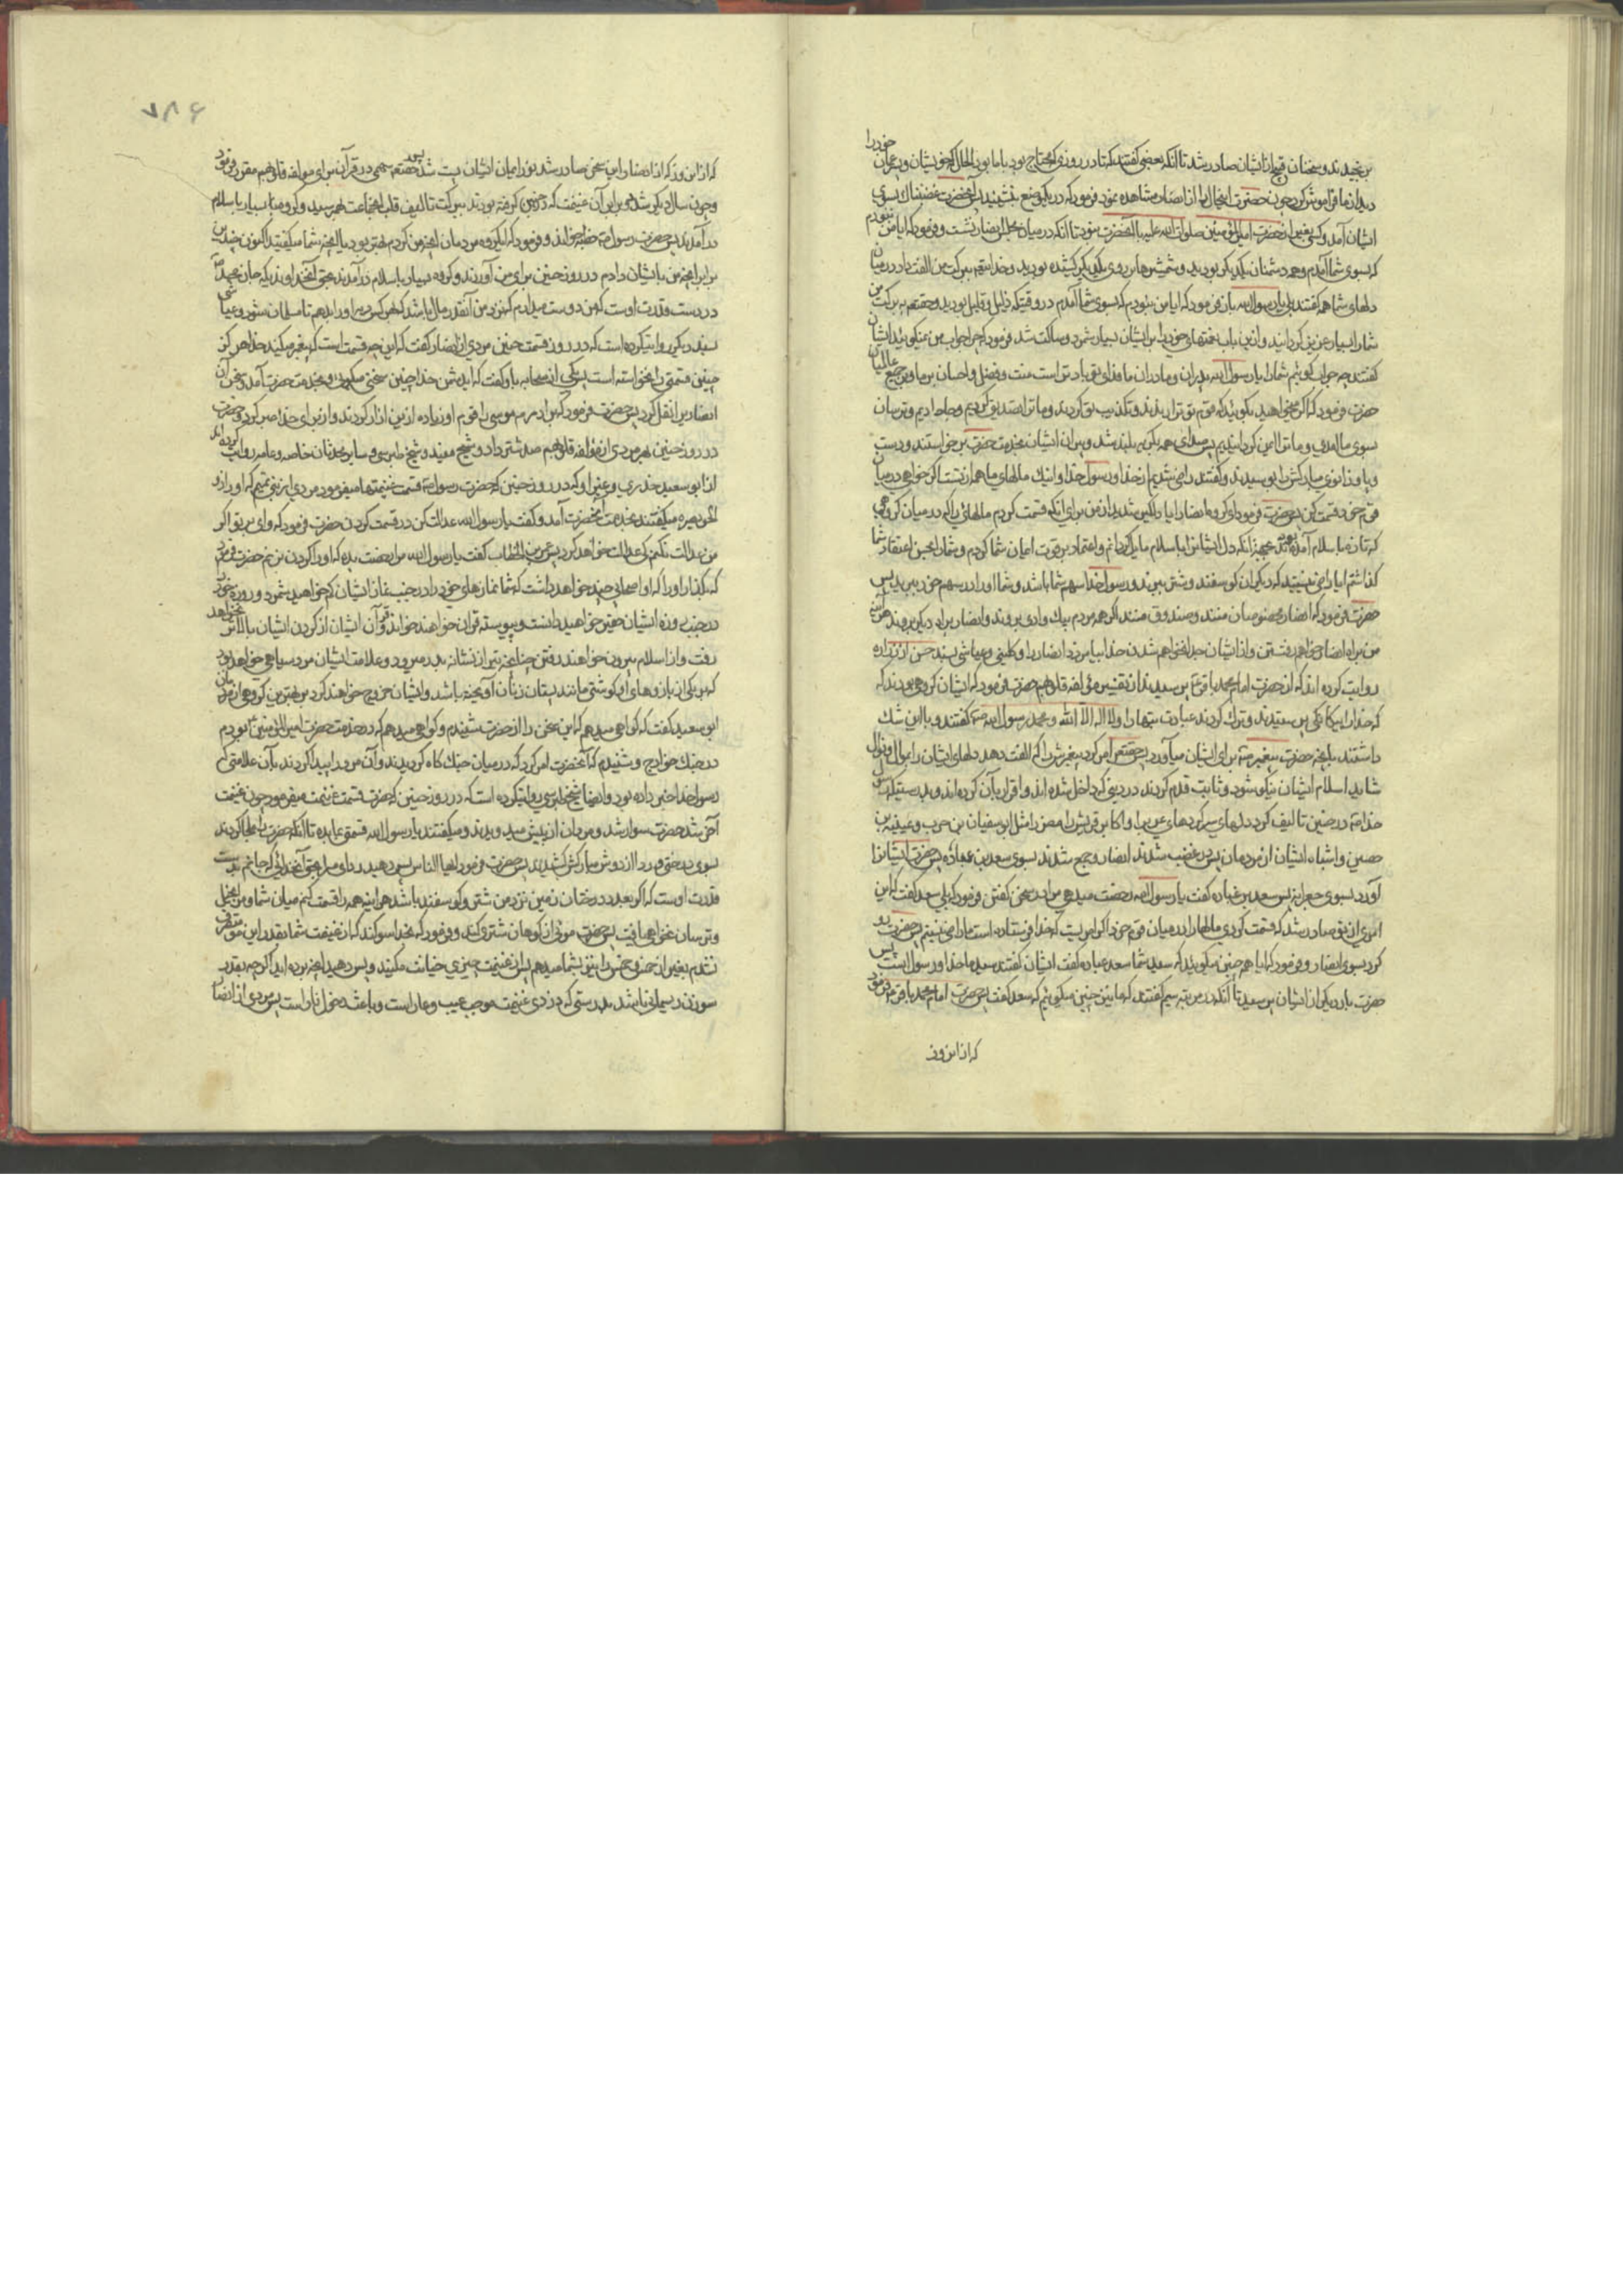 برنجیدند و سخنان قبیح از ایشان صادر شد تا آنکه بعضی گفتند که تا در روزی که محتاج بود با ما بود الحال که خویشان و پسرعمان خود را
دید از ما فراموش کرد چون حضرت این حال را از انصار مشاهده نمود فرمود که در یک موضع بنشینید پس آنحضرت غضبناک بسوی
ایشان آمد و کسی بغیر از حضرت امیرالمؤمنین صلوات الله علیه با آنحضرت نبود تا آنکه در میان مجلس انصار نشست و فرمود که آیا من نبودم
که بسوی شما آمدم و همه دشمنان یکدیگر بودید و شمشیرها بر روی یکدیگر کشیده بودید و خدا بقیه ببرکت من الفت داد در میان
دلهای شما همه گفتند بلی یا رسول الله باز فرمود که آیا من نبودم که بسوی شما آمدم در وقتیکه ذلیل و قلیل بودید و حقتعم به برکت من
شما را بسیار و عزیز گردانید و از این باب نعمتهای خود را بر ایشان بسیار شمرد و ساکت شد فرمود که چرا جواب من نمیگوئید ایشان
گفتند چه جواب گوئیم شما را یا رسول الله پدران و مادران ما فدای تو باد تراست منت و فضل و احسان بر ما و بر جمیع عالمیان
حضرت فرمود که اگر میخواهید بگوئید که قوم تو ترا راندند و تکذیب تو کردند و ما ترا تصدیق کردیم و جا دادیم و ترسان
سوی ما آمدی و ما ترا ایمن گردانیدیم پس صدای همه بگریه بلند شد و پیران ایشان بخدمت حضرت برخواستند و دست
و پا و زانوی مبارکش را بوسیدند و گفتند راضی شدیم از خدا و رسول خدا و اینک مالهای ما همه از تست اگر خواهی در میان
قوم خود قسمت کن پس حضرت فرمود ای گروه انصار آیا دلگیر شدید از من برای آنکه قسمت کردم مالهائی را که در میان گروهی
که تازه باسلام آمده بودند بجهة آنکه دل ایشانرا باسلام مایل گردانم و اعتماد بر قوت ایمان شما کردم و شما را بحسن اعتقاد شما
گذاشتم آیا راضی نیستید که دیگران گوسفند و شتر ببرند و رسول خدا سهم شما باشد و شما او را در سهم خود ببرید پس
حضرت فرمود که انصار مخصوصان منند و صندوق منند اگر همه مردم بیک وادی بروند و انصار براه دیگر بروند هر آینه
من براه انصار خواهم رفت و از ایشان جدا نخواهم شد خدایا بیامرز انصار را و کلینی و عیاشی بسند حسن از زراره
روایت کرده اند که از حضرت امام محمد باقر ع پرسیدند از تفسیر مؤلفه قلوبهم حضرت فرمود که ایشان گروهی بودند که
که خدا را بیگانگی پرستیدند و ترک کردند عبادت بتها را و لا اله الا الله و محمد رسول الله ص گفتند و با این شک
داشتند بآنچه حضرت پیغمبر ص برای ایشان میآورد پس حقتعم امر کرد پیغمبرش را که الفت دهد دلهای ایشان را بمال و نوال
شاید اسلام ایشان نیکو شود و ثابت قدم گردند در دینی که داخل شده اند و اقرار بآن کرده اند و بدرستیکه رسول
خدا ص در حنین تالیف کرد دلهای سرکردهای عرب را و اکابر قریش را و مضر را مثل ابوسفیان بن حرب و عیینة بن
حصین و اشباه ایشان از مردمان پس در غضب شدند انصار و جمع شدند بسوی سعد بن عباده پس حضرت ایشانرا
آورد بسوی جعرانه پس سعد بن عباده گفت یا رسول الله رخصت میدهی مرا در سخن گفتن فرمود که بلی سعد گفت که این
امری از تو صادر شد که قسمت کردی مالها را در میان قوم خود اگر امریست که خدا فرستاده است ما راضی هستیم پس حضرت رو
کرد بسوی انصار و فرمود که آیا همه چنین میگوئید که سعد سید شما سعد عباده گفت ایشان گفتند سید ما خدا و رسول اوست پس
حضرت بار دیگر از ایشان پرسید تا آنکه در مرتبه سیم گفتند که ما نیز چنین میگوئیم که سعد گفت پس حضرت امام محمد باقر ع فرمود
که از این روز
۷۸۶
که از این روز که از انصار این سخن صادر شد نور ایمان ایشان پست شد و حقتعم سهمی در قرآن برای مؤلفه قلوبهم مقرر فرمود
و چون سال دیگر شد دو برابر آن غنیمت که در حنین گرفته بودند ببرکت تالیف قلب آنجماعت بهم رسید و گروهی بسیار باسلام
در آمدند پس حضرت رسول ص خطبه خواند و فرمود که ای گروه مردمان آنچه من کردم بهتر بود یا آنچه شما میگفتید اکنون چندین
برابر آنچه من بایشان دادم در روز حنین برای من آوردند و گروه بسیار باسلام در آمدند بحق آنخداوندیکه جان محمد ص
در دست قدرت اوست که من دوست میدارم که نزد من آنقدر مال باشد که بهر کس دیه او را بدهم تا مسلمان شود و عیاشی
بسند دیگر روایتکرده است که در روز قسمت حنین مردی از انصار گفت که این چه قسمت است که پیغمبر میکند خدا هرگز
چنین قسمتی را نخواسته است پس یکی از صحابه باو گفت که ای دشمن خدا چنین سخنی میگوئی و بخدمت حضرت آمد و سخن آن
انصاری را نقل کرد پس حضرت فرمود که برادرم موسی را قوم او زیاده از من آزار کردند و از برای خدا صبر کرد و حضرت
در روز حنین بهر مردی از مؤلفه قلوبهم صد شتر داد و شیخ مفید و شیخ طبرسی و سایر محدثان خاصه و عامه روایت کرده اند
از ابو سعید خدری و غیر او که در روز حنین که حضرت رسول ص قسمت غنیمتها میفرمود مردی از بنی تمیم که او را ذو
الخویصره میگفتند بخدمت آنحضرت آمد و گفت یا رسول الله عدالت کن در قسمت کردن حضرت فرمود که وای بر تو اگر
من عدالت نکنم که عدالت خواهد کرد پس عمر بن الخطاب گفت یا رسول الله مرا رخصت بده که او را گردن بزنم حضرت فرمود
که بگذار او را که او اصحابی چند خواهد داشت که شما نمازهای خود را در جنب نماز ایشان کم خواهید شمرد و روزه خود را
در جنب روزه ایشان حقیر خواهید دانست و پیوسته قرآن خواهند خواند و قرآن ایشان از گردن ایشان بالاتر نخواهد
رفت و از اسلام بیرون خواهند رفتن چنانچه تیر از نشانه بدر میرود و علامت ایشان مرد سیاهی خواهد بود
که بر یکی از بازوهای او گوشتی مانند پستان زنان آویخته باشد و ایشان خروج خواهند کرد بر بهترین گروهی از مردمان
ابو سعید گفت که گواهی میدهم که این سخن را از حضرت شنیدم و گواهی میدهم که در خدمت حضرت امیرالمؤمنین ع بودم
در جنگ خوارج و شنیدم که آنحضرت امر کرد که در میان جنگ گاه گردیدند و آن مرد را پیدا کردند بآن علامتی که
رسول خدا خبر داده بود و ایضا شیخ طبرسی روایتکرده است که در روز حنین که حضرت قسمت غنیمت میفرمود چون غنیمت
آخر شد حضرت سوار شد و مردمان از پیش میدویدند و میگفتند یا رسول الله قسمتی بما بده تا آنکه حضرت را ملجا کردند
بسوی درختی و ردا از دوش مبارکش کشیدند پس حضرت فرمود ایها الناس پس دهید ردای مرا بحق آنخدائی که جانم بدست
قدرت اوست که اگر بعدد درختان زمین نزد من شتر و گوسفند باشد هر آینه همه را قسمت کنم میان شما و من بخیل
و ترسان نخواهید یافت پس حضرت موئی از کوهان شتری کند و فرمود که بخدا سوگند که از غنیمت شما بقدر این مو تصرف
نکردم بغیر از خمس و خمس را نیز بشما میدهم پس از غنیمت چیزی خیانت مکنید و پس دهید آنچه برده اید اگرچه بقدر
سوزن و ریسمانی باشد بدرستی که دزدی غنیمت موجب عیب و عار است و باعث دخول نار است پس مردی از انصار